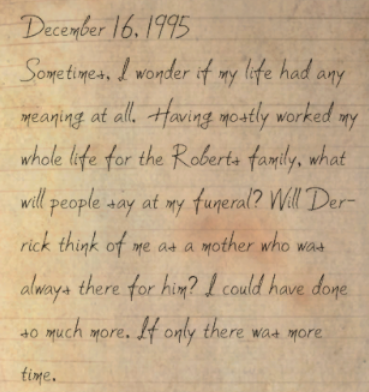 December 16, 1995
Sometimes, I wonder if my life had any
meaning at all. Having mostly worked my
whole life for the Roberts family, what
will people say at my funeral? Will Der-
rick think of me as a mother who was
always there for him? I could have done
so much more. If only there was more
time.